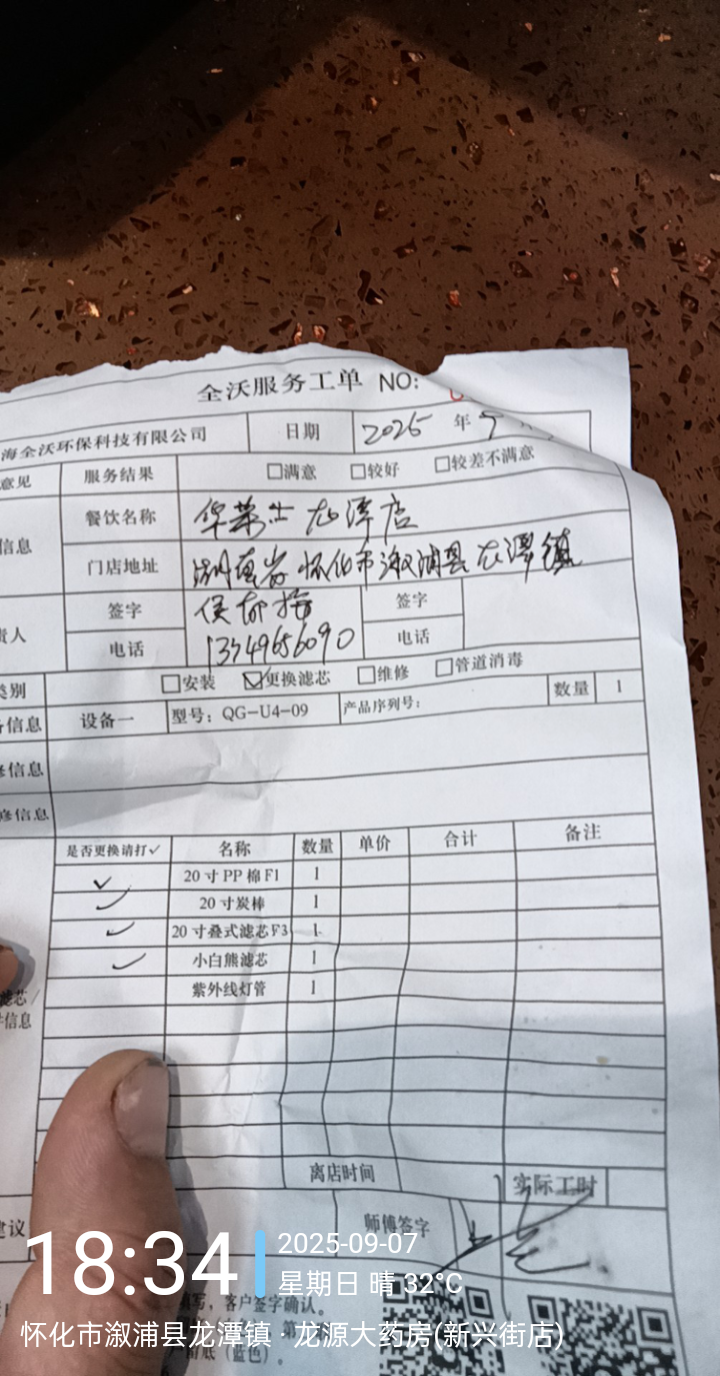 全沃服务工单 NO:
海全沃环保科技有限公司 日期 2025 年 9
意见 服务结果 □满意 □较好 □较差不满意
信息 餐饮名称 华莱士龙潭店
门店地址 湖南省怀化市溆浦县龙潭镇
责人 签字 签字
电话 电话
类别 □安装 ☑更换滤芯 □维修 □管道消毒
备信息 设备一 型号：QG-U4-09 产品序列号： 数量 1
修信息
修信息
是否更换请打✓ 名称 数量 单价 合计 备注
✓ 20寸PP棉F1 1
✓ 20寸炭棒 1
✓ 20寸叠式滤芯F3 1
✓ 小白熊滤芯 1
滤芯/ 紫外线灯管 1
件信息
离店时间 实际工时
建议 师傅签字
填写，客户签字确认。
第
留底（蓝色）。
18:34
2025-09-07
星期日 晴 32℃
怀化市溆浦县龙潭镇·龙源大药房(新兴街店)